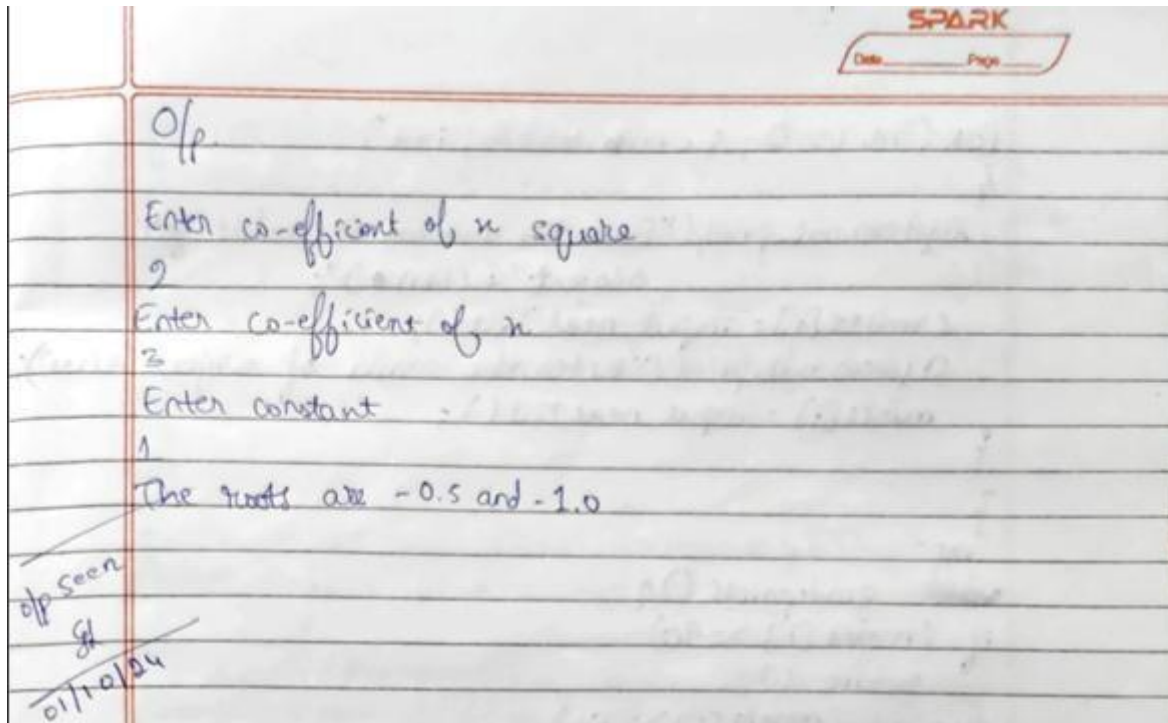 SPARK
Date Page
O/p.
Enter co-efficient of x square
2
Enter co-efficient of x
3
Enter constant
1
The roots are -0.5 and -1.0
o/p seen
01/10/24